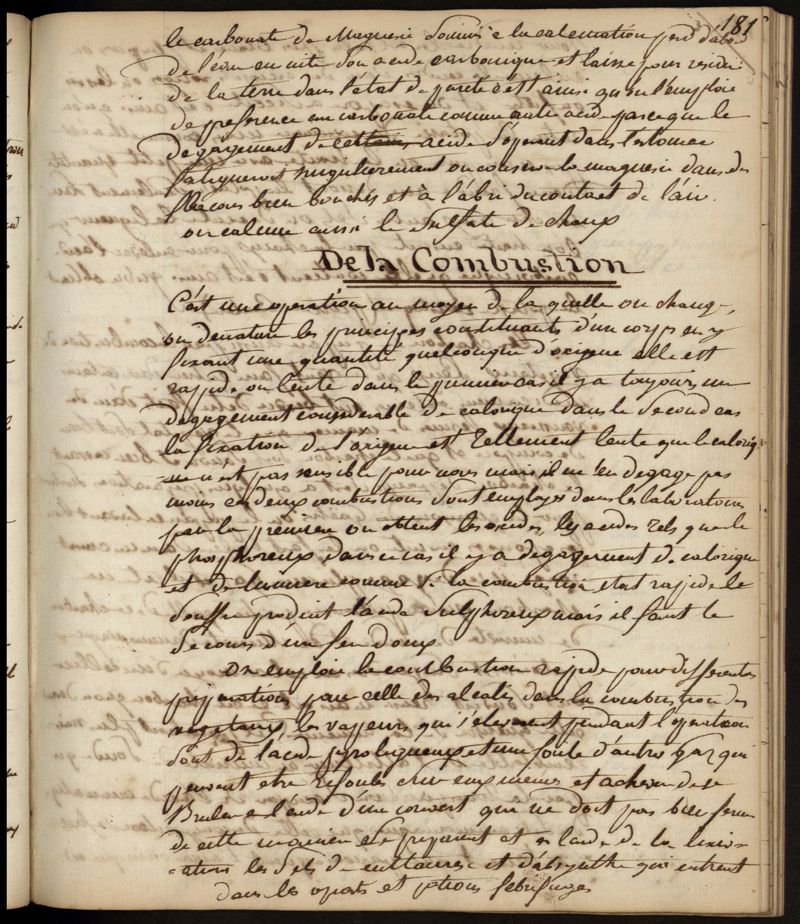 181
le carbonate de Magnesie soumis a la calcination perd d'abord
de l'eau ensuite son acide carbonique et laisse pour residu
de la terre dans l'etat de pureté c'est ainsi qu'on l'emploie
de preference au carbonate comme anti acide parce que le
degagement de cet acide s'operant dans l'estomac
fatigueroit singulierement on conserve la magnesie dans des
flacons bien bouchés et à l'abri du contact de l'air.
on calcine aussi le Sulfate de chaux
De la Combustion
C'est une operation au moyen de la quelle on change,
ou denature les principes constituants d'un corps en y
fixant une quantité quelconque d'oxigene elle est
rapide ou lente dans le premier cas il y a toujours un
degagement considerable de calorique dans le second cas
la fixation de l'oxigene est tellement lente que le caloriq
ue n'est pas sensible pour nous mais il ne s'en degage pas
moins ces deux combustions sont employés dans les laboratoires
par la premiere on obtient les oxides, les acides tels que le
phosphoreux dans ce cas il y a degagement de calorique
et de lumiere comme si la combustion etait rapide le
Souffre produit l'acide Sulphureux mais il faut le
Secours d'un feu doux
On emploie la combustion rapide pour differentes
preparations pour celle des alcalis dans la combustion des
vegetaux, les vapeurs qui s'elevent pendant l'operation
sont de l'acide pyroligneux et une foule d'autres gaz qui
peuvent etre refoulés sur eux memes et achever de se
Bruler a l'aide d'un couvert qui ne doit pas bien fermer
de cette maniere se preparent et a l'aide de la lixivi-
ation les Sels de centaurée et d'absynthe qui entrent
dans les opiats et potions febrifuges